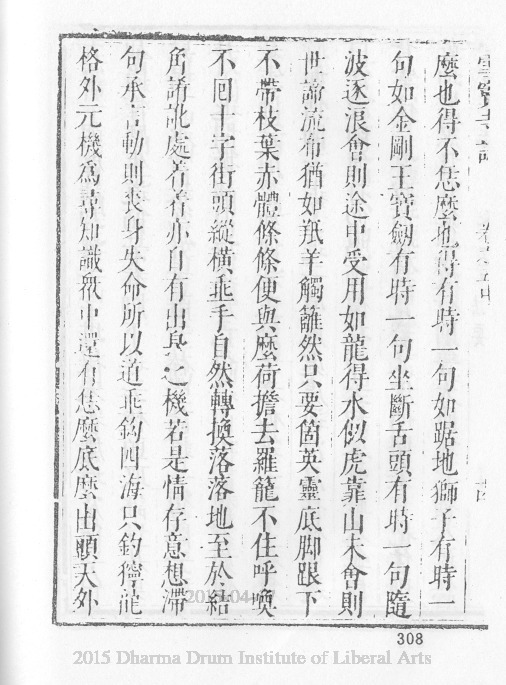 雪竇寺誌
麼也得不恁麼也得有時一句如踞地獅子有時一
句如金剛王寶劒有時一句坐斷舌頭有時一句隨
波逐浪會則途中受用如龍得水似虎靠山未會則
世諦流布猶如羝羊觸籬然只要箇英靈底脚跟下
不帶枝葉赤體條條便與麼荷擔去羅籠不住呼喚
不囘十字街頭縱橫垂手自然轉換落落地至於結
角誵訛處着着亦自有出身之機若是情存意想滯
句承言動則喪身失命所以道垂鈎四海只釣獰龍
格外元機為尋知識衆中還有恁麼底麼出頭天外
308
2015 Dharma Drum Institute of Liberal Arts